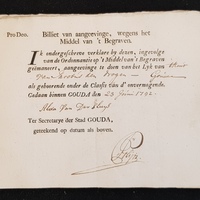 Pro Deo.
Billiet van aangeevinge, wegens het
Middel van 't Begraven.
Ik ondergeschreve verklare by dezen, ingevolge
van de Ordonnantie op 't Middel van 't Begraven
geëmaneert, aangeevinge te doen van het Lyk van
als gehoorende onder de Classis van d' onvermogende.
Gedaan binnen GOUDA den 23 Juny 1792.
Van Der
Ter Secretarye der Stad GOUDA,
geteekend op datum als boven.